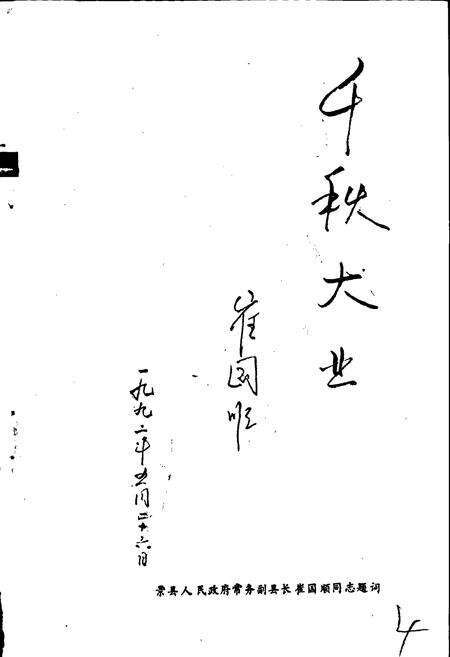 千秋大业
崔国顺
一九九二年五月二十六日
景县人民政府常务副县长崔国顺同志题词
4